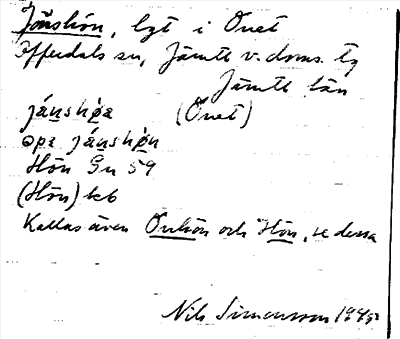 Jönshön, lgt i Önet
Offerdals sn, Jämtl. v. doms. tg
Jämtl. län
jánshøa (Önet)
opa jánshøn
Hön Gn 59
(Hön) kb
Kallas även Önhön och Hön, se dessa
Nils Simonsson 1945